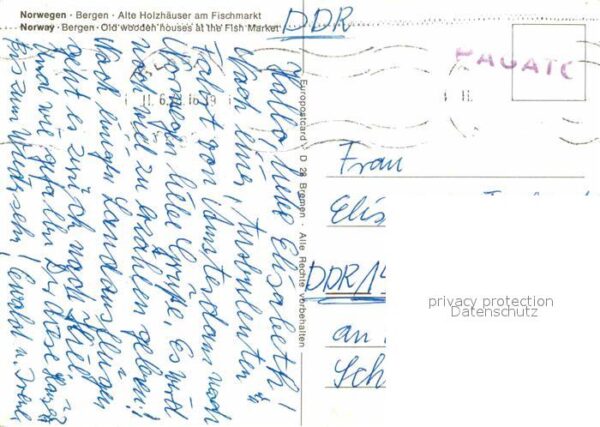 Norwegen · Bergen · Alte Holzhäuser am Fischmarkt
Norway · Bergen · Old wooden houses at the Fish Market
DDR
PAGATE
11. 6. 16-19
Hallo, liebe Elisabeth!
Nach einer turbulenten
Fahrt von Amsterdam nach
Norwegen liebe Grüße. Es wird
noch viel zu erzählen geben!
Nach einigen Landausflügen
geht es zurück nach Kiel.
Und wie gefallen Dir diese Häuser?
Bis zum Wiedersehn! Ewald u.
Europostcard D 28 Bremen · Alle Rechte vorbehalten
Frau
Elis
DDR/14
an
Sch
privacy protection
Datenschutz